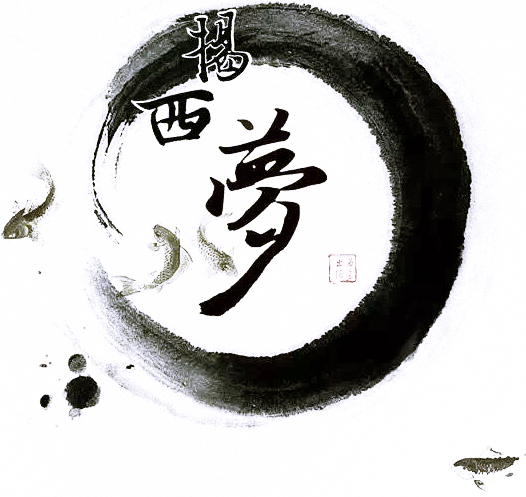 揭
西
夢